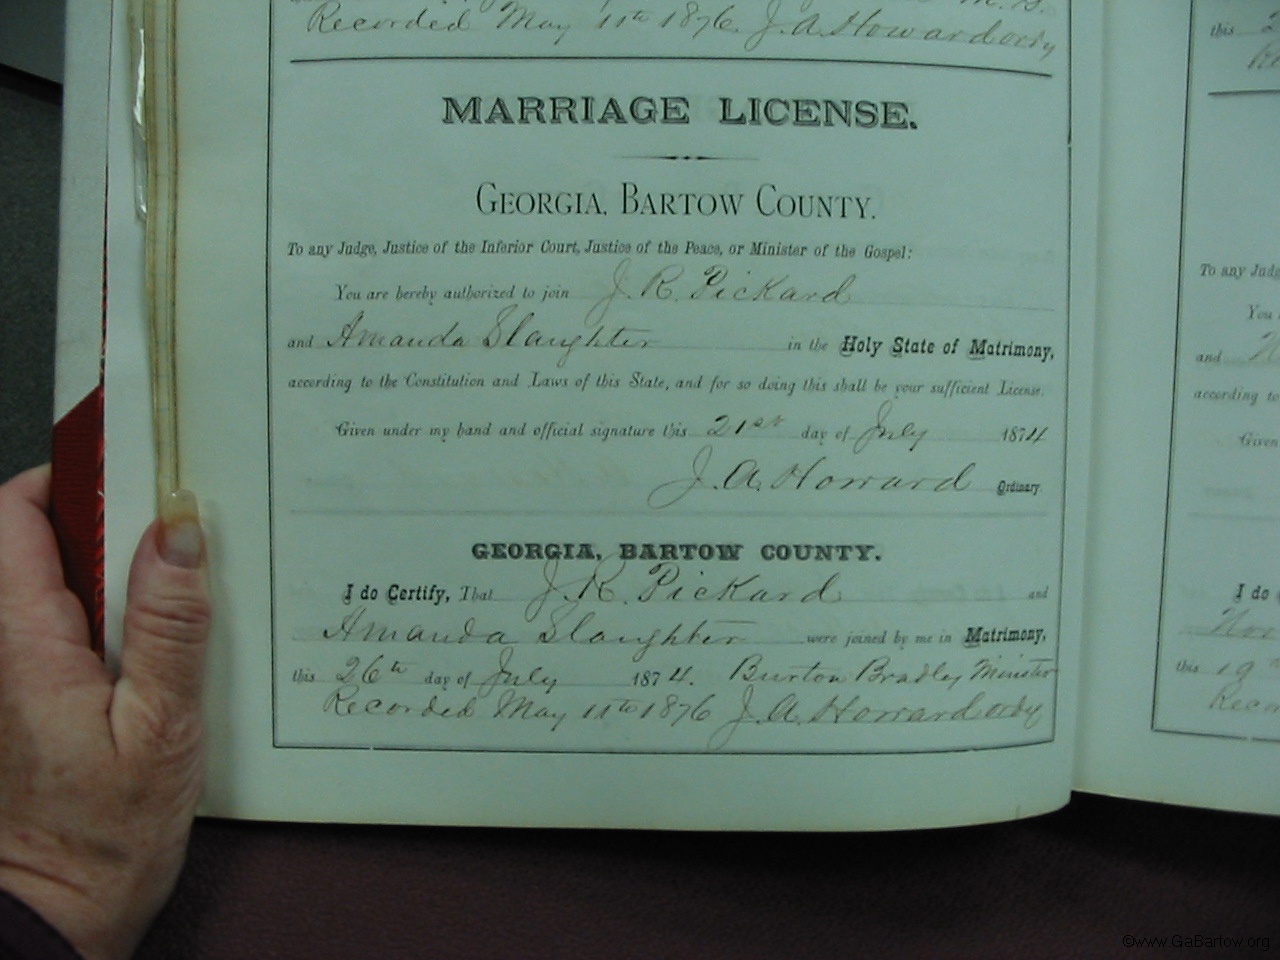 M. G.
Recorded May 11th 1876. J. A. Howard ordy
MARRIAGE LICENSE.
GEORGIA, BARTOW COUNTY.
To any Judge, Justice of the Inferior Court, Justice of the Peace, or Minister of the Gospel:
You are hereby authorized to join J. R. Pickard
and Amanda Slaughter in the Holy State of Matrimony,
according to the Constitution and Laws of this State, and for so doing this shall be your sufficient License.
Given under my hand and official signature this 21st day of July 1874
J. A. Howard Ordinary.
GEORGIA, BARTOW COUNTY.
I do Certify, That J. R. Pickard and
Amanda Slaughter were joined by me in Matrimony,
this 26th day of July 1874. Burton Bradley Minister
Recorded May 11th 1876 J. A. Howard ordy
this
To any Judg
You
and
according to
Given
I do
this 19
©www.GaBartow.org